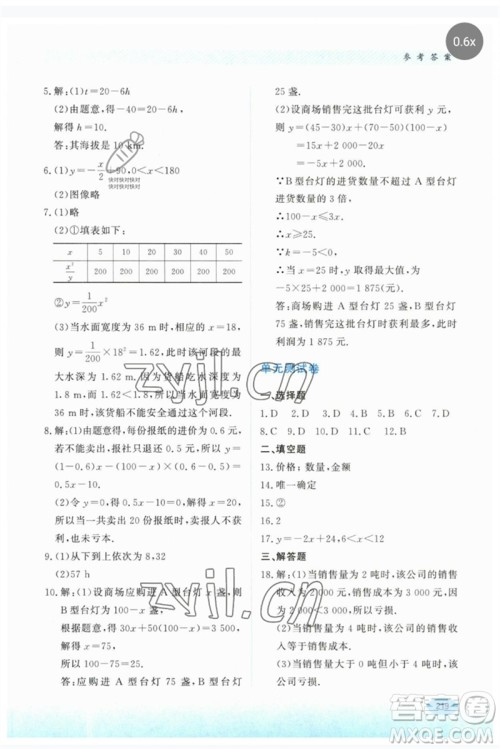 参考答案
0.6x
5.解:(1)t=20-6h
(2)由题意,得-40=20-6h,
解得 h=10.
答:其海拔是 10 km.
6.(1)y=-x/2+90,0<x<180
(2)图像略
7.(1)略
(2)①填表如下:
x 5 10 20 30 40 50
x²/y 200 200 200 200 200 200
②y=1/200 x²
(3)当水面宽度为 36 m 时,相应的 x=18,
则 y=1/200×18²=1.62,此时该河段的最
大水深为 1.62 m.因为货船吃水深为
1.8 m,而 1.62<1.8,所以当水面宽度为
36 m 时,该货船不能通过这个河段.
(2)令 y=0,得 0.5x-10=0,解得 x=20.
也未亏本.
9.(1)从下到上依次为 8,32
(2)57 h
10.解:(1)设商场应购进 A 型台灯 x 盏,则
B 型台灯为(100-x)盏.
根据题意,得 30x+50(100-x)=3 500,
解得 x=75,
所以 100-75=25.
答:应购进 A 型台灯 75 盏,B 型台灯
25 盏.
(2)设商场销售完这批台灯可获利 y 元,
则 y=(45-30)x+(70-50)(100-x)
=15x+2 000-20x
=-5x+2 000.
∵B 型台灯的进货数量不超过 A 型台灯
数量的 3 倍,
∴100-x≤3x,
∴x≥25.
∵k=-5<0,
∴当 x=25 时,y 取得最大值,为
-5×25+2 000=1 875(元).
答:商场购进 A 型台灯 25 盏,B 型台灯
75 盏,销售完这批台灯时获利最多,此时
利润为 1 875 元.
单元测试卷
一、选择题
二、填空题
13.价格;数量,金额
14.唯一确定
15.②
16.2
17.y=-2x+24,6<x<12
三、解答题
18.解:(1)当销售量为 2 吨时,该公司的销售
收入为 2 000 元,销售成本为 3 000 元.
(2)当销售量为 4 吨时,该公司的销售收
入等于销售成本.
(3)当销售量大于 4 吨时,该公司盈利;当
销售量小于 4 吨时,该公司亏损.
zyjl.cn
答案圈
MXQE.COM